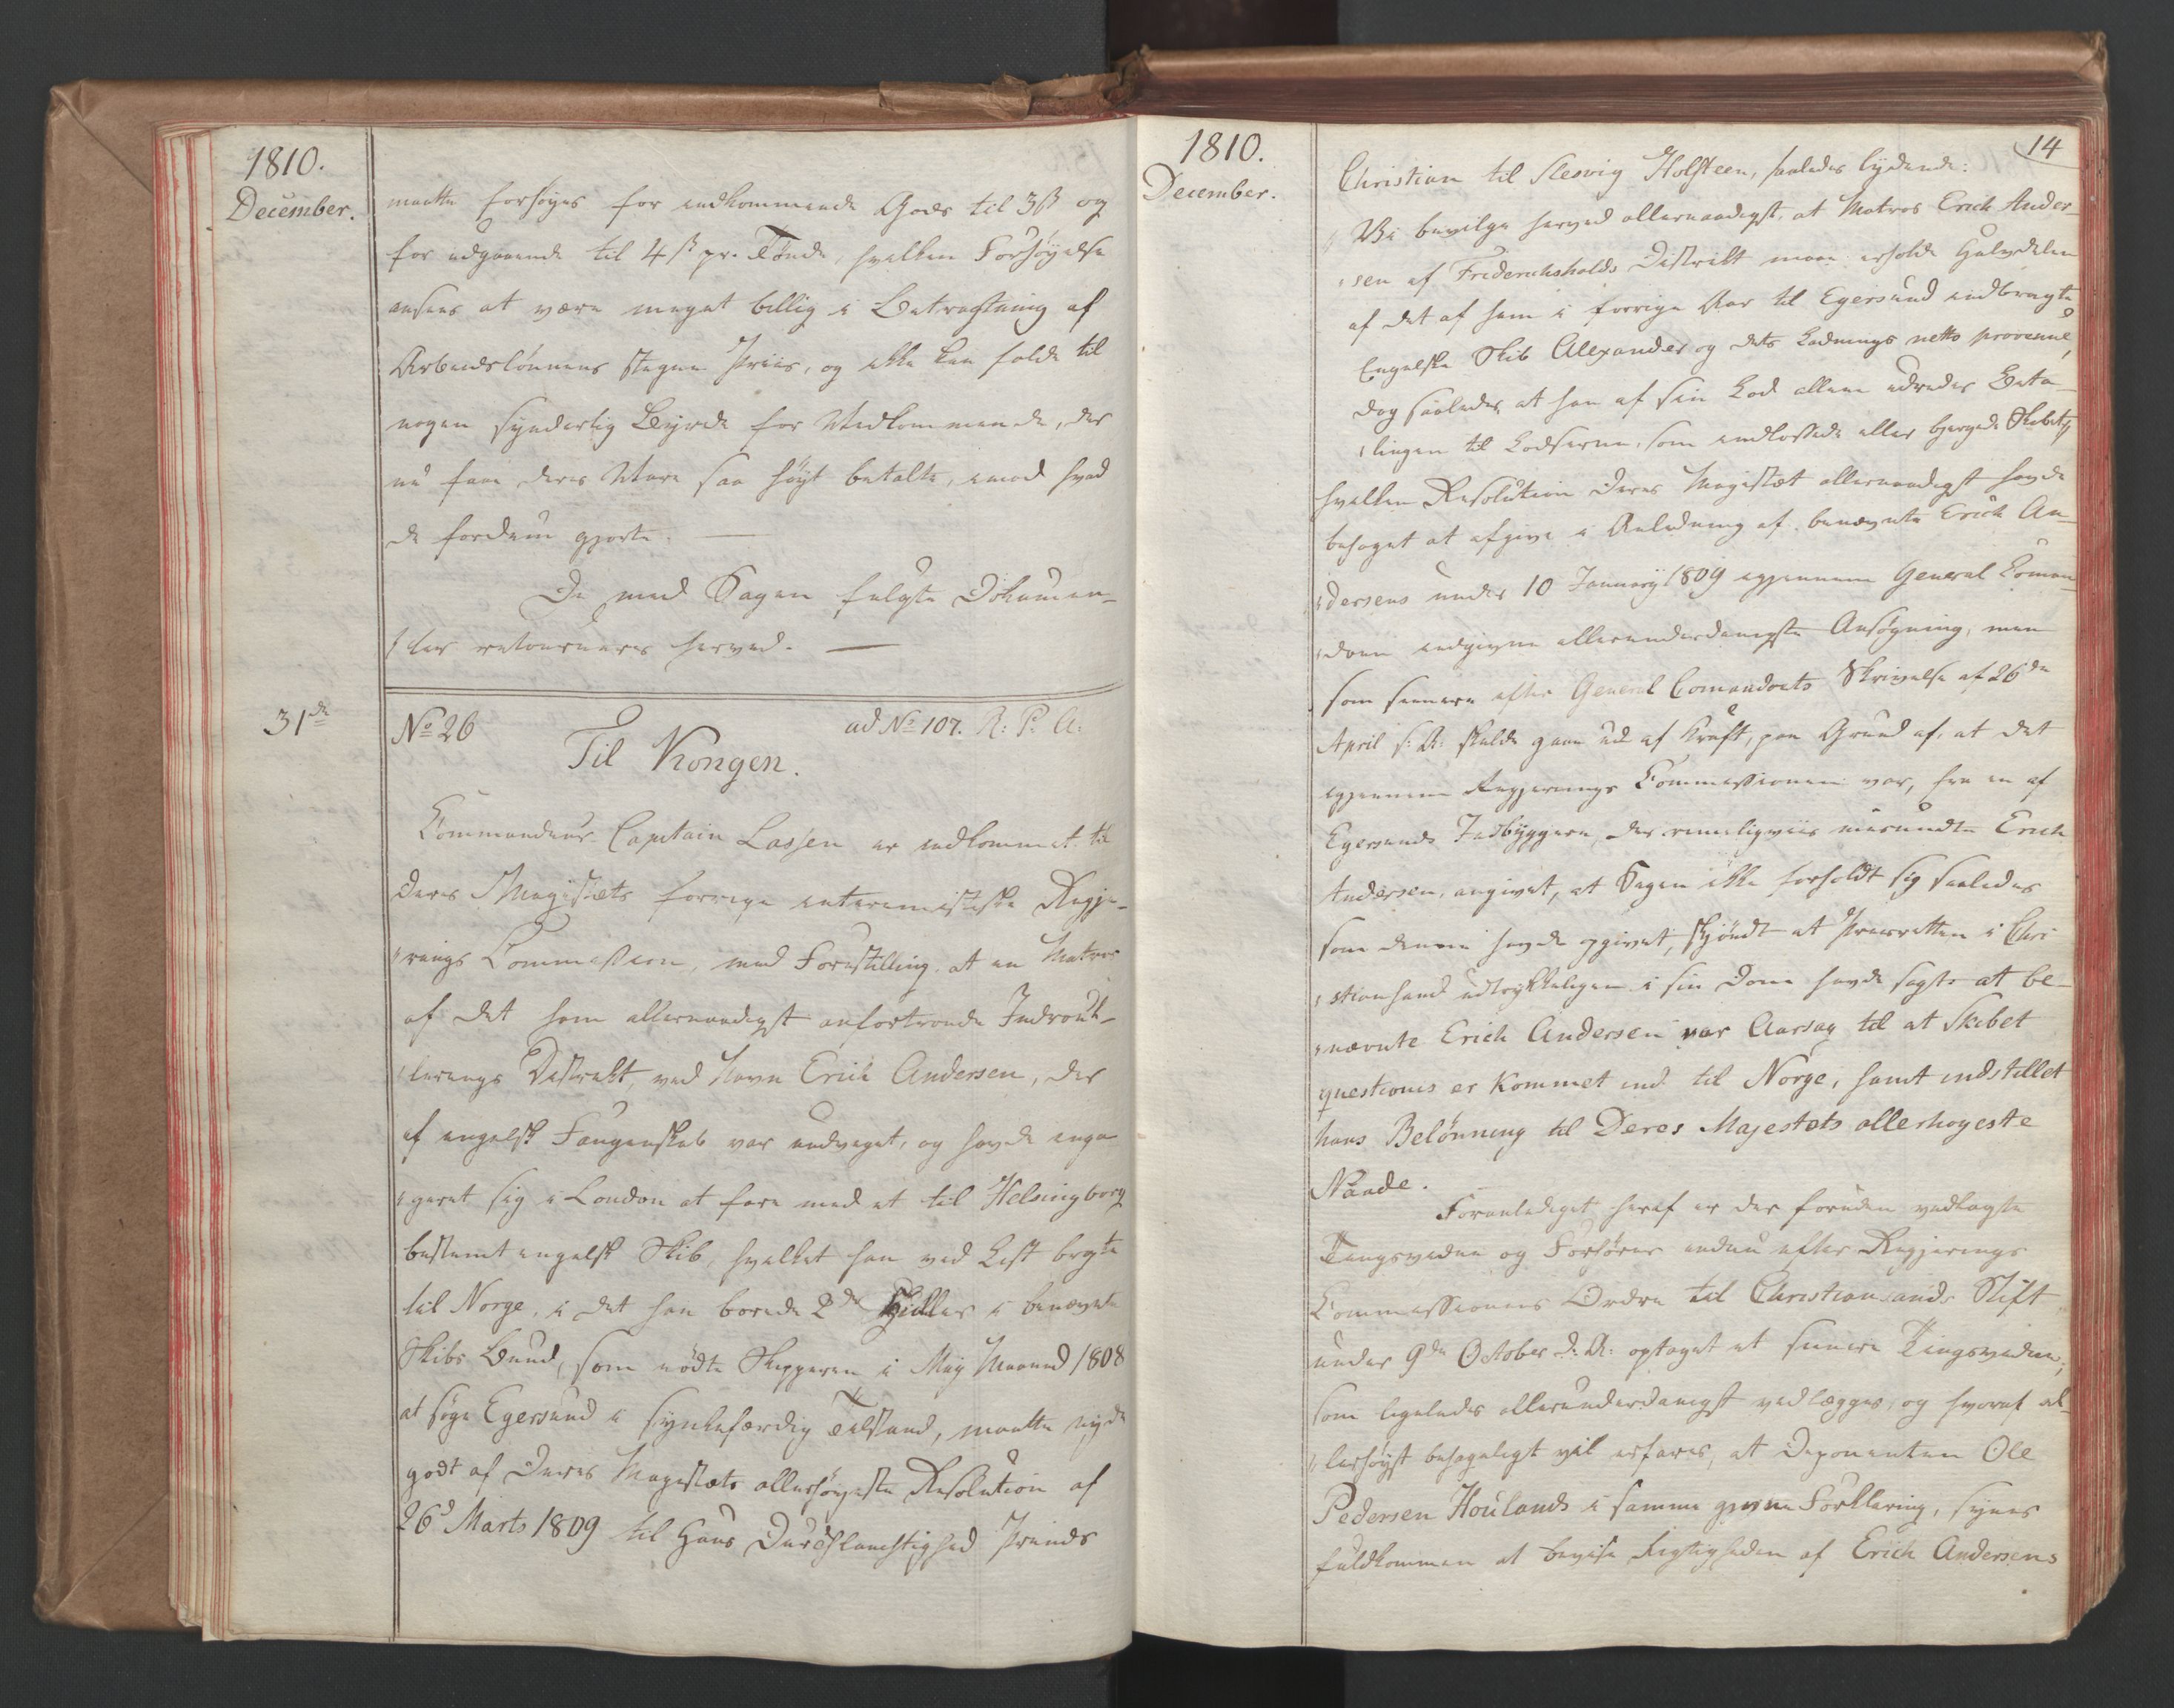 1810.
December.
maatte forhøyes for indkommende Gods til 3ß og
for udgaaende til 4ß pr. Tønde, hvilken Forhøyelse
ansees at være meget billig i Betragtning af
Arbeidslønnens stegne Priis, og ikke kan falde til
nogen synderlig Byrde for Vedkommende, der
nu faae deres Vare saa høyt betalte, imod hvad
de fordum gjorte.
De med Sagen fulgte Dokumen-
ter retourneres herved.
31te
No 26
ad No 107. R: P: A:
Til Kongen.
Commandeur-Capitain Lassen er indkommet til
Deres Majestæts forrige interimistiske Regje-
rings Commission, med Forestilling at en Matros
af det ham allernaadigst anfortroede Indroul-
lerings Distrikt, ved Navn Erich Andersen, der
af engelsk Fangenskab var undveget, og havde enga-
geret sig i London at fare med et til Helsingborg
bestemt engelsk Skib, hvilket han ved List bragte
til Norge, i det han borede 2de Huller i benævnte
Skibs Bund, som nødte Skipperen i May Maaned 1808
at søge Egersund i synkefærdig Tilstand, maatte nyde
godt af Deres Majestæts allerhøyeste Resolution af
26d Marts 1809 til Hans Durchlauchtighed Prinds
1810.
December.
14
Christian til Slesvig Holsteen, saaledes lydende:
Vi bevilge herved allernaadigst, at Matros Erich Ander-
sen af Friderichshalds Distrikt maae erholde Halvdelen
af det af ham i forrige Aar til Egersund indbragte
Engelske Skib Alexander og dets Ladnings netto provenue,
dog saaledes at han af sin Lod allene udreder Beta-
lingen til Lodserne, som indlossede eller bjergede Skibet,
hvilken Resolution Deres Majestæt allernaadigst havde
behaget at afgive i Anledning af benævnte Erich An-
dersens under 10 January 1809 igjennem General Coman-
doen indgivne allerunderdanigste Ansøgning, men
som senere efter General Comandoets Skrivelse af 26de
April s: A: skulde gaae ud af Kraft, paa Grund af, at det
igjennem Regjerings Commissionen var, fra en af
Egersunds Indbyggere, der rimeligviis misundte Erich
Andersen, angivet, at Sagen ikke forholdt sig saaledes
som denne havde opgivet, skjøndt at Priseretten i Chri-
stiansand udtrykkeligen i sin Dom havde sagt at be-
nævnte Erich Andersen var Aarsag til at Skibet
questionis er kommet ind til Norge, samt indstillet
hans Belønning til Deres Majestæts allerhøyeste
Naade.
Foranlediget heraf er der foruden vedlagte
Tingsvidne og Forhører endnu efter Regjerings
Commissionens Ordre til Christiansands Stift
under 9de October d: A: optaget et senere Tingsvidne,
som ligeledes allerunderdanigst vedlægges, og hvoraf al-
lerhøyst behageligt vil erfares, at Deponenten Ole
Pedersen Houlands i samme givne Forklaring, synes
fuldkommen at bevise Rigtigheden af Erich Andersens